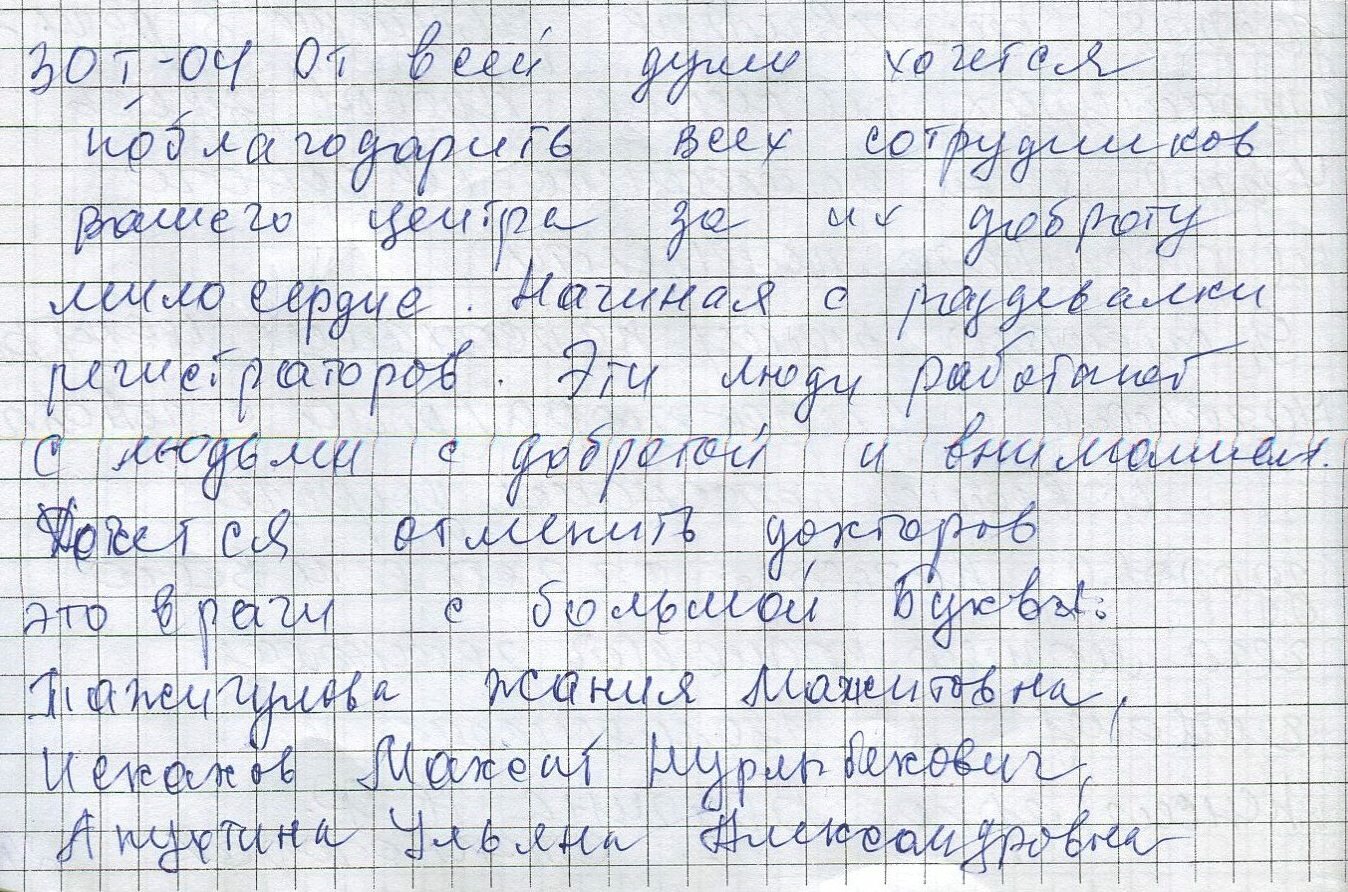 30 I-04 От всей души хочется
поблагодарить всех сотрудников
вашего центра за их доброту
милосердие. Начиная с раздевалки
регистраторов. Эти люди работают
с людьми с добротой и вниманием.
Хочется отменить докторов
это врачи с большой Буквы:
Тажигулова жания Мажитовна,
Искаков Максат Нурлыбекович,
Апухтина Ульяна Александровна